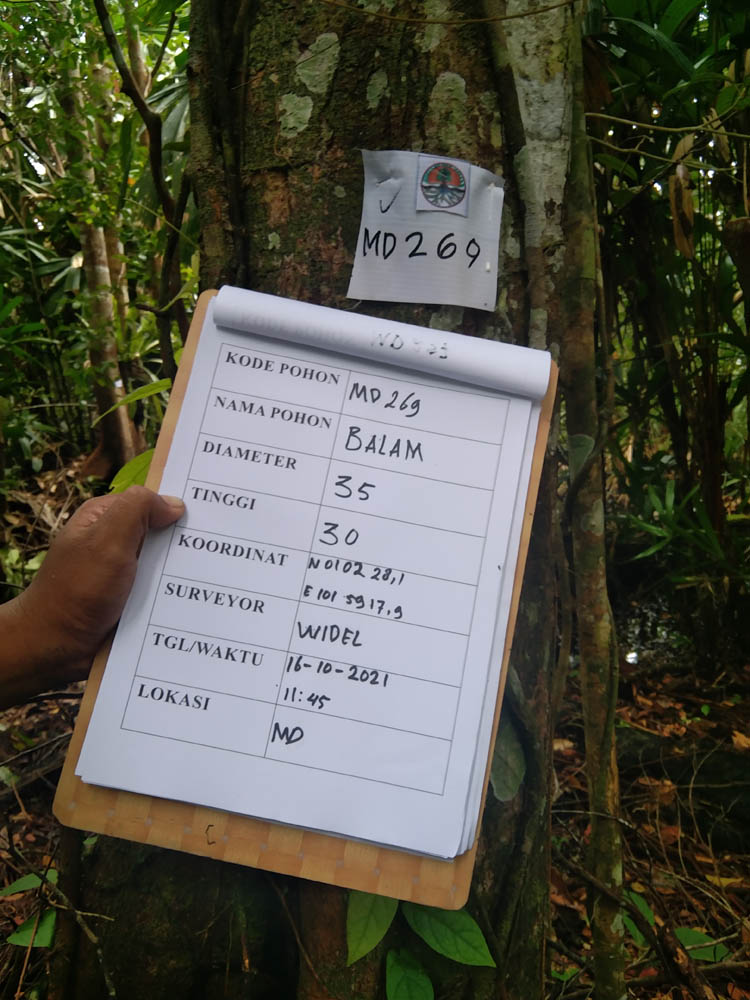 MD269
KODE POHON MD269
NAMA POHON BALAM
DIAMETER 35
TINGGI 30
KOORDINAT N0102 28,1
E 101 5917,9
SURVEYOR WIDEL
TGL/WAKTU 16-10-2021
11:45
LOKASI MD